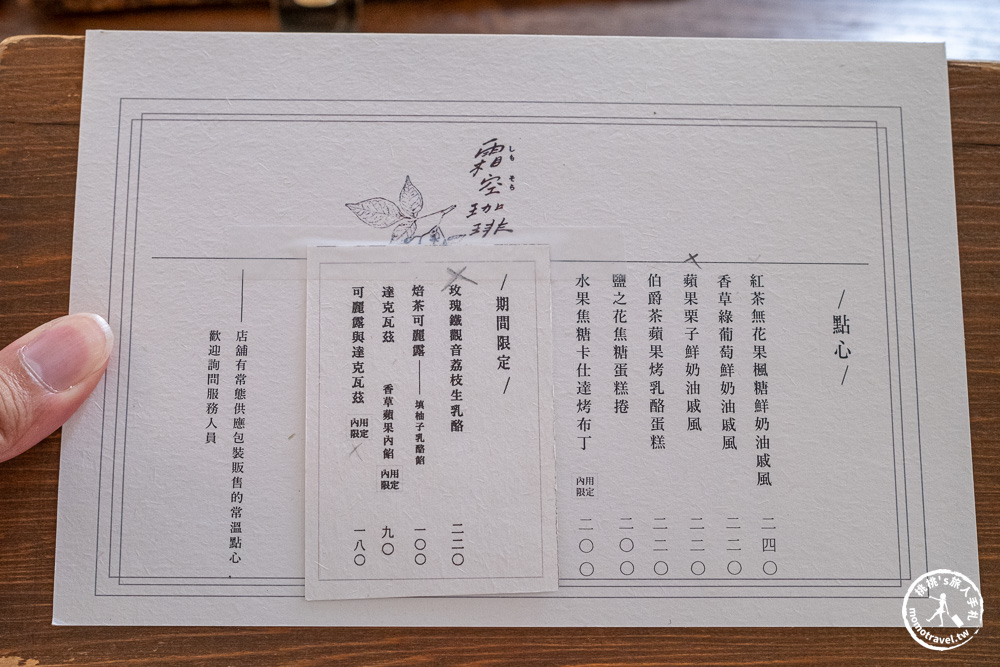 霜空珈琲
しも そら
/點心/
紅茶無花果楓糖鮮奶油戚風 二四〇
香草綠葡萄鮮奶油戚風 二二〇
蘋果栗子鮮奶油戚風 二二〇
伯爵茶蘋果烤乳酪蛋糕 二二〇
鹽之花焦糖蛋糕捲 二〇〇
水果焦糖卡仕達烤布丁 內用限定 二〇〇
/期間限定/
玫瑰鐵觀音荔枝生乳酪 二二〇
焙茶可麗露——填柚子乳酪餡 一〇〇
達克瓦茲 香草蘋果內餡 內用限定 九〇
可麗露與達克瓦茲 內用限定 一八〇
——店舖有常態供應包裝販售的常溫點心.
歡迎詢問服務人員
桃桃's旅人手札
momotravel.tw